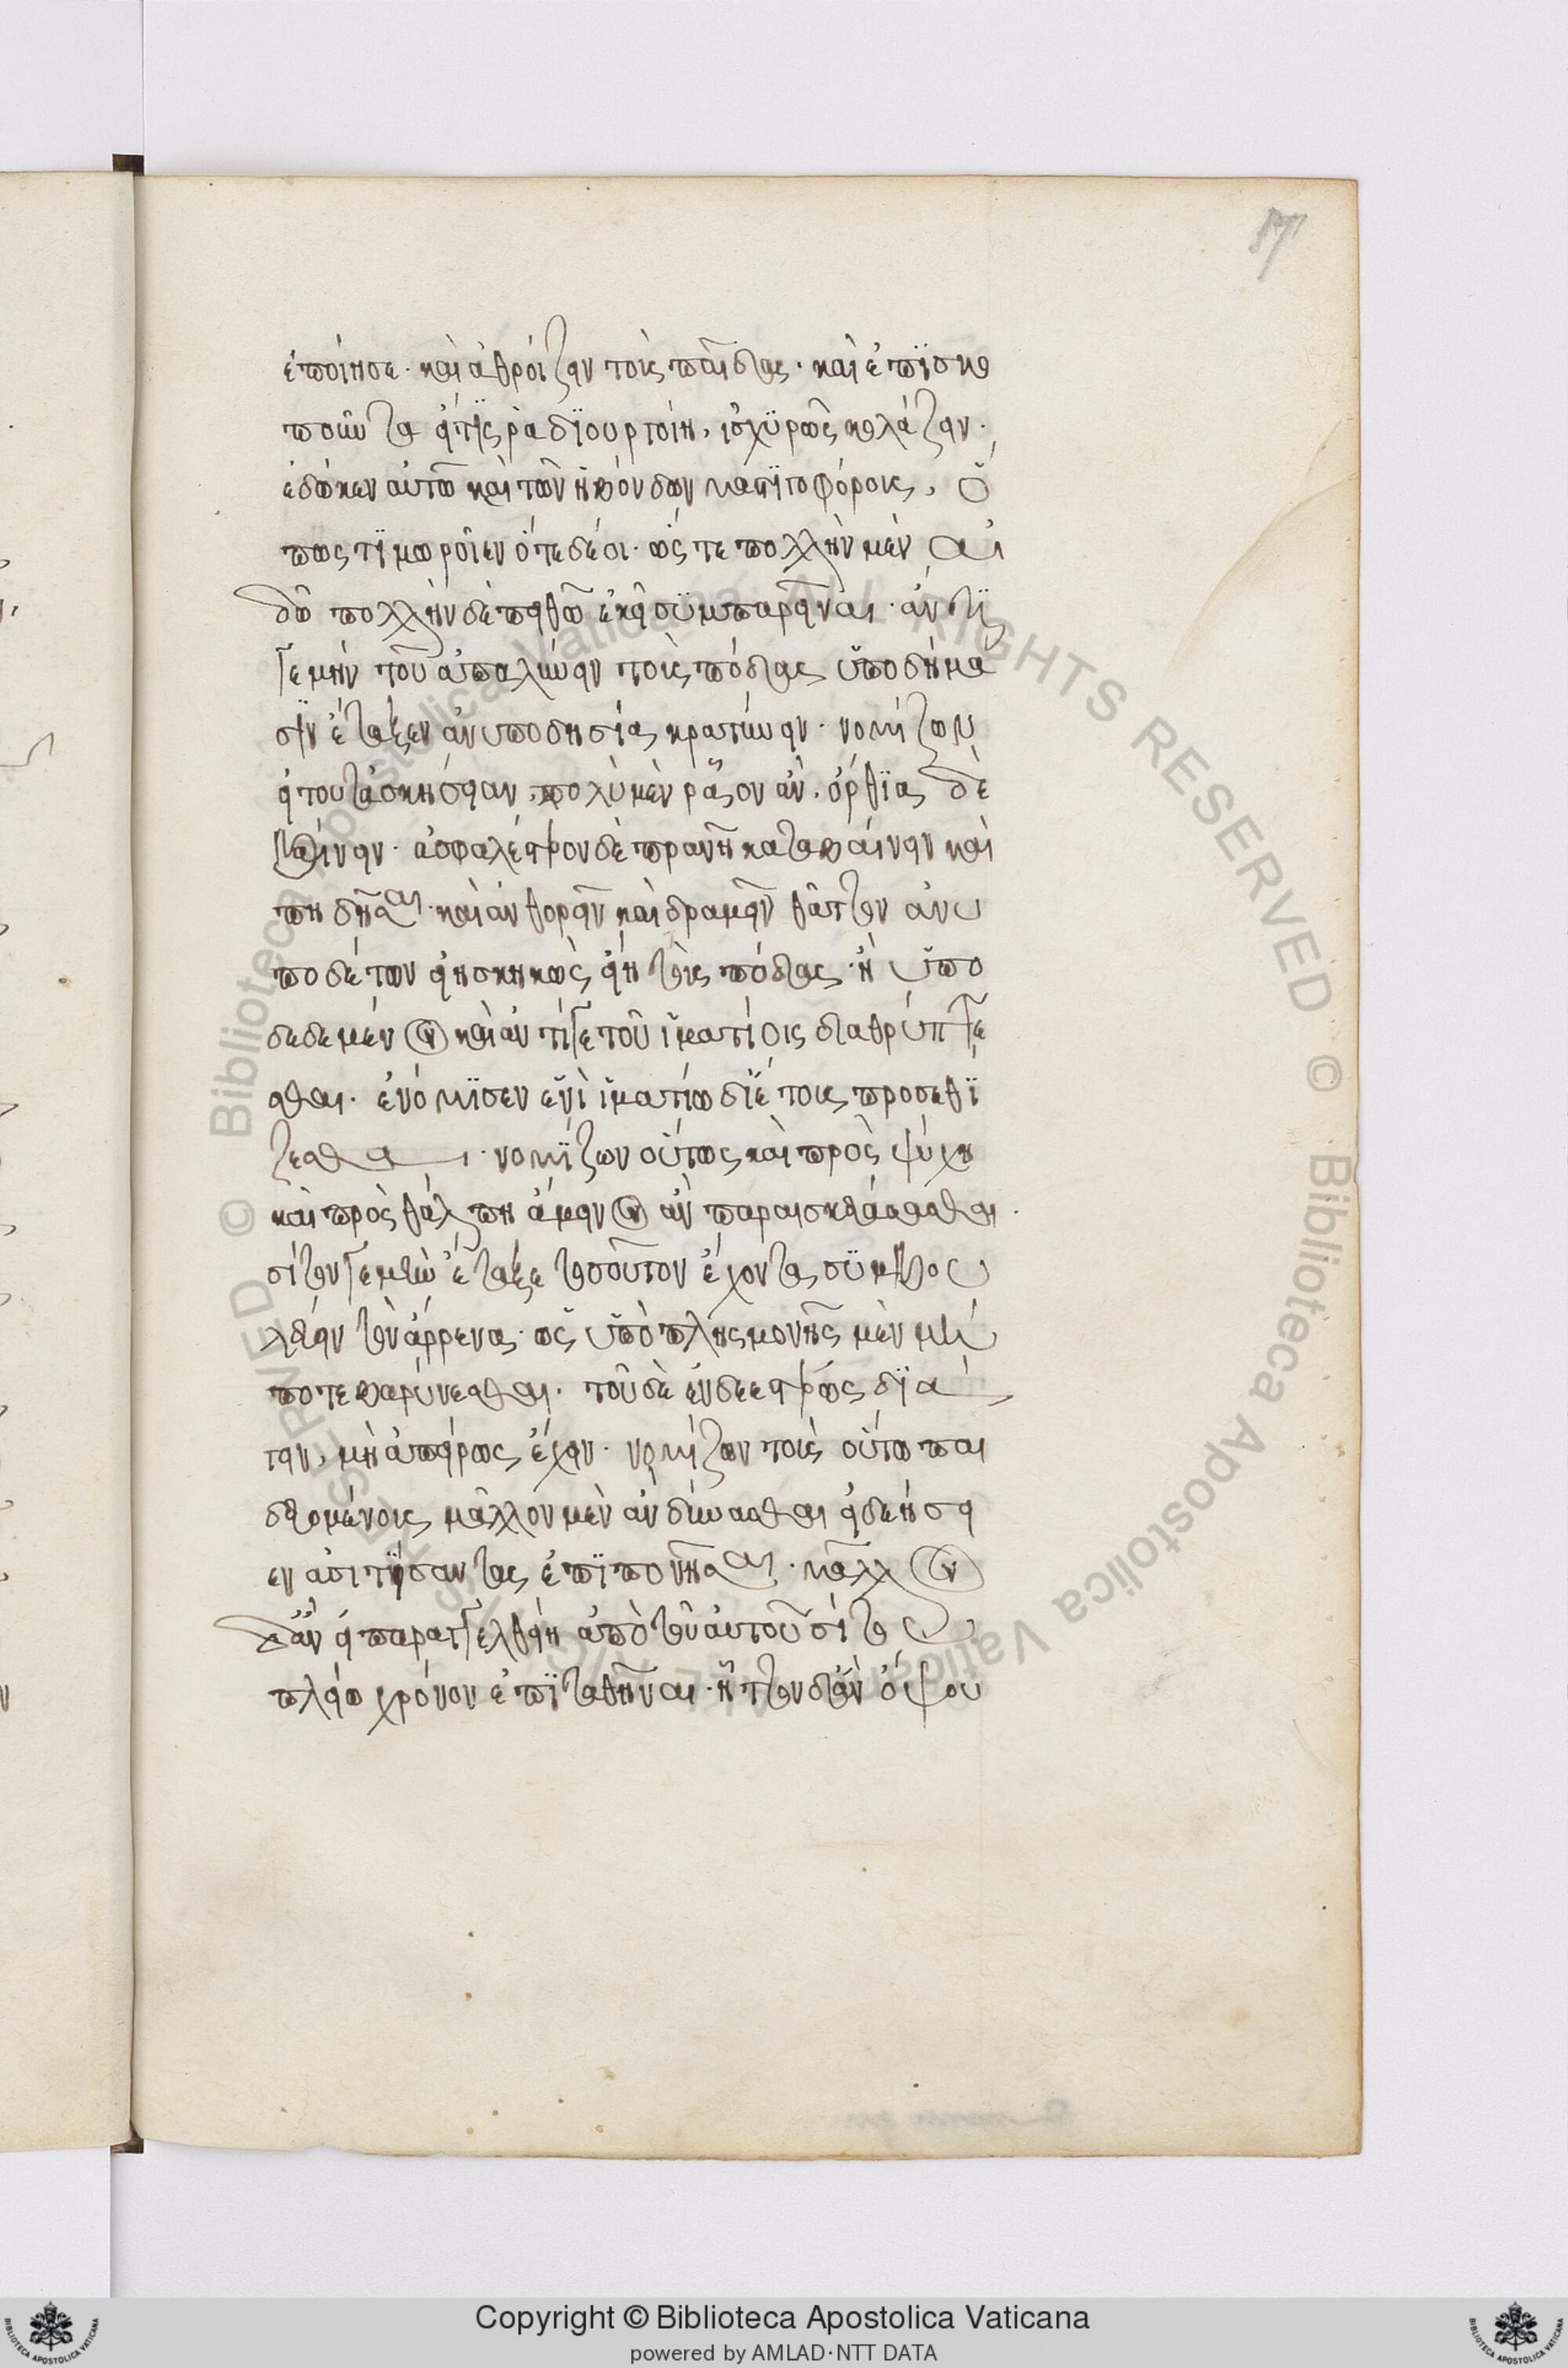 ἐποίησε· καὶ ἀθροίζειν τοὺς παῖδας· καὶ ἐπϊσκο
ποῦντα εἴ τϊς ῥαδϊουργοίη, ἰσχϋρῶς κολάζειν·
ἔδωκεν αὐτῶ καὶ τῶν ἡβόντων μαστϊγοφόρους, ὅ
πως τϊμωροῖεν ὅτε δέοι· ὥς τε πολλὴν μὲν αἰ
δῶ πολλὴν δὲ πειθῶ ἐκεῖ σϋμπαρεῖναι· ἀντΐ
γε μὴν τοῦ ἁπαλύνειν τοὺς πόδας ὑποδήμα
σϊν ἔταξεν ἀνυποδησίας κρατύνειν· νομίζων
εἰ τοῦτ' ἀσκήσειαν, πολὺ μὲν ῥᾷον ἂν, ὀρθϊας δὲ
βαίνειν· ἀσφαλέστερον δὲ πρανῆ καταβαίνειν καὶ
πηδῆσαι· καὶ ἀνθορεῖν καὶ δραμεῖν θᾶττον ἀνυ
πόδετον εἰ ἠσκηκὼς εἴη τοὺς πόδας· ἢ ὑπο
δεδεμένον καὶ ἀντίγε τοῦ ἱματίοις διαθρύπτε
σθαι· ἐνόμϊσεν ἑνὶ ἱματίω δϊ' ἔτους προσεθϊ
ζεσθαι· νομΐζων οὕτως καὶ πρὸς ψύχη
καὶ πρὸς θάλπη ἄμεινον ἂν παρασκευάσασθαι·
σῖτόν γε μὴν ἔταξε τοσοῦτον ἔχοντας σϋμβου
λεύειν τὸν ἄρρενα· ὡς ὑπὸ πλησμονῆς μὲν μή
ποτε βαρύνεσθαι· τοῦ δὲ ἐνδεεστέρως δϊά
γειν, μὴ ἀπείρως ἔχειν· νομίζων τοὺς οὕτω παι
δευομένους μᾶλλον μὲν ἂν δύνασθαι εἰ δεήσει
εν ἀσιτήσαντας ἐπϊπονῆσαι· μᾶλλον
δ' ἂν εἰ παραγγελθείη ἀπὸ τοῦ αὐτοῦ σίτου
πλείω χρόνον ἐπϊταθῆναι· ἧττον δ' ἂν ὄψου
Copyright © Biblioteca Apostolica Vaticana
powered by AMLAD·NTT DATA